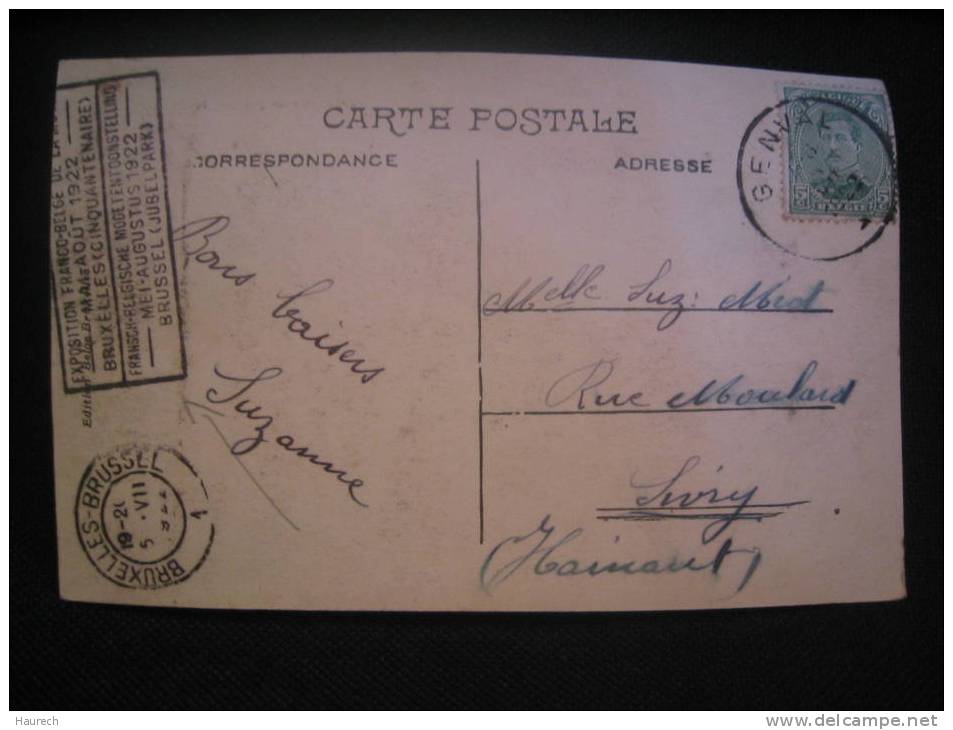 CARTE POSTALE
CORRESPONDANCE
ADRESSE
EXPOSITION FRANCO-BELGE DE LA
MAI-AOUT 1922
BRUXELLES (CINQUANTENAIRE)
FRANSCH-BELGISCHE MODETENTOONSTELLING
MEI-AUGUSTUS 1922
BRUSSEL (JUBELPARK)
GENVAL
5
BRUXELLES-BRUSSEL
1
5 VII
Bons baisers
Suzanne
Melle Suz:
Rue Moulard
Sivry
(Hainaut)
Haurech
www.delcampe.net